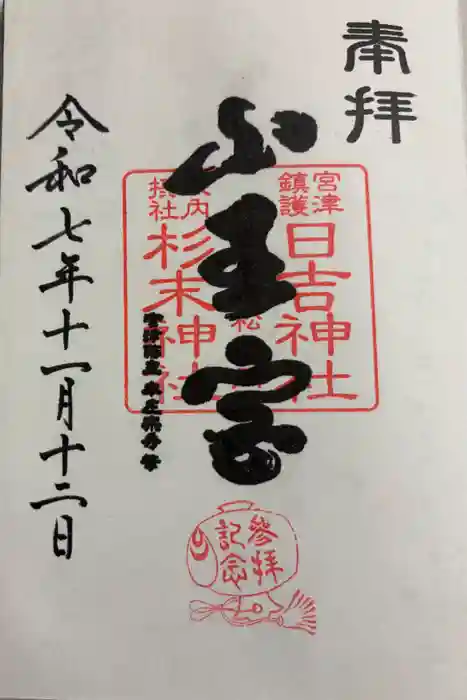 奉拝
山王宮
宮津
鎮護
日吉神社
松
境内
摂社
杉末神社
令和七年十一月十二日
参拝
記念